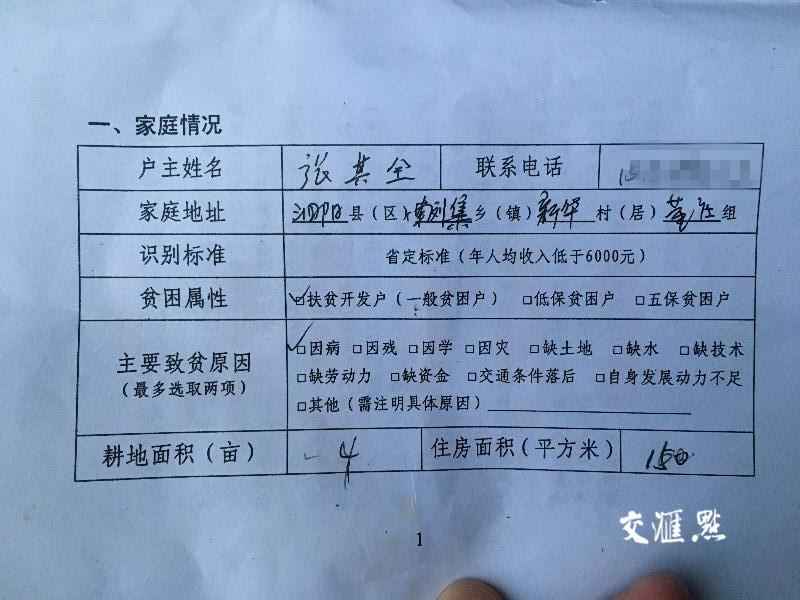 一、家庭情况
户主姓名 张其全 联系电话
家庭地址 泗阳县（区）南刘集乡（镇）新华村（居）组
识别标准 省定标准（年人均收入低于6000元）
贫困属性 ☑扶贫开发户（一般贫困户） □低保贫困户 □五保贫困户
主要致贫原因
（最多选取两项）
☑因病 □因残 □因学 □因灾 □缺土地 □缺水 □缺技术
□缺劳动力 □缺资金 □交通条件落后 □自身发展动力不足
□其他（需注明具体原因）
耕地面积（亩） 4 住房面积（平方米） 150
1
交汇點